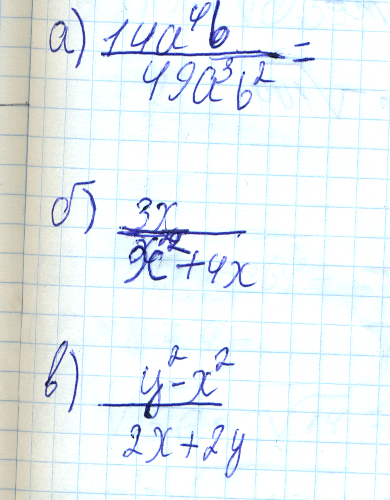 а) 14a⁴b
49a³b² =
б) 3x
x² + 4x
в) y² - x²
2x + 2y